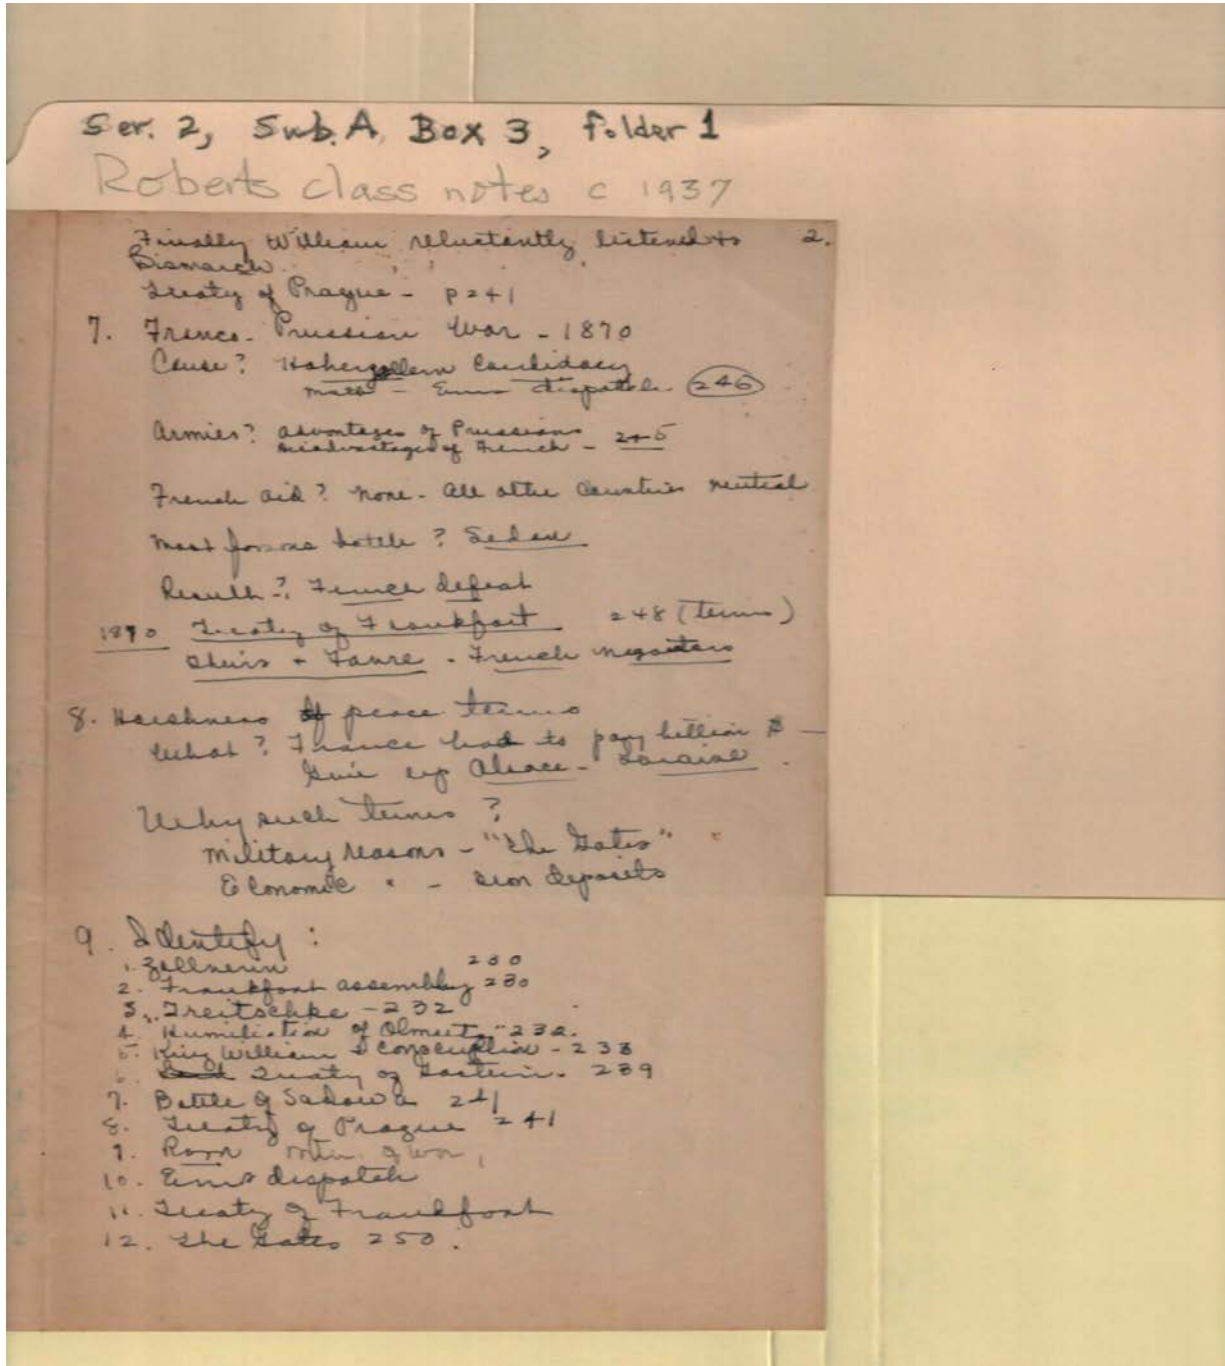 Ser. 2, Sub. A, Box 3, Folder 1
Roberts class notes c 1937
Finally William reluctantly listened to 2.
Bismarck.
Treaty of Prague - p241
7. Franco-Prussian War - 1870
Cause? Hohenzollern Candidacy
Ems dispatch. 246
Armies? advantages of Prussians
disadvantages of French - 245
French aid? None - All other Countries neutral
Most famous battle? Sedan
Result? French defeat
1870 Treaty of Frankfort 248 (terms)
Thiers + Favre - French
8. Harshness of peace terms
What? France had to pay billion $ -
Give up Alsace-Loraine.
Why such terms?
Military reasons - "The Gates"
Economic " - iron deposits
9. Identify:
1. Zollverin 230
2. Frankfort assembly 230
3. Treitschke - 232
4. Humiliation of Olmutz - 232.
5. King William & conscription - 233
6. Treaty of Gastein. 239
7. Battle of Sadowa 241
8. Treaty of Prague 241
9. Roon Min. of War,
10. Ems dispatch
11. Treaty of Frankfort
12. The Gates 250.